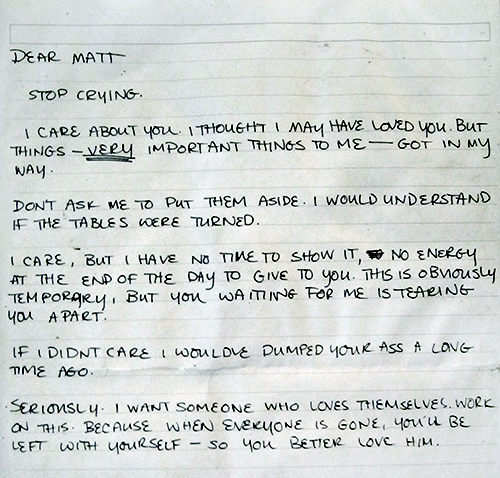 DEAR MATT
STOP CRYING.
I CARE ABOUT YOU. I THOUGHT I MAY HAVE LOVED YOU. BUT
THINGS – VERY IMPORTANT THINGS TO ME — GOT IN MY
WAY.
DON'T ASK ME TO PUT THEM ASIDE. I WOULD UNDERSTAND
IF THE TABLES WERE TURNED.
I CARE, BUT I HAVE NO TIME TO SHOW IT, NO ENERGY
AT THE END OF THE DAY TO GIVE TO YOU. THIS IS OBVIOUSLY
TEMPORARY, BUT YOU WAITING FOR ME IS TEARING
YOU APART.
IF I DIDNT CARE I WOULDVE DUMPED YOUR ASS A LONG
TIME AGO.
SERIOUSLY. I WANT SOMEONE WHO LOVES THEMSELVES. WORK
ON THIS. BECAUSE WHEN EVERYONE IS GONE, YOU'LL BE
LEFT WITH YOURSELF – SO YOU BETTER LOVE HIM.